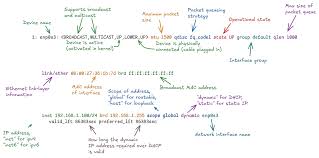 Device name
Supports broadcast and multicast
Maximum packet size
Packet queueing strategy
Operational state
Max size of packet queue
1: enp0s3 <BROADCAST,MULTICAST,UP,LOWER_UP> mtu 1500 qdisc fq_codel state UP group default qlen 1000
Device is active (activated in kernel)
Device is physically connected (cable plugged in)
Interface group
link/ether 08:00:27:36:cb:7d brd ff:ff:ff:ff:ff:ff
Ethernet link-layer information
MAC address of interface
Broadcast MAC address
Scope of address, "global" for routable, "host" for loopback
"dynamic" for DHCP, "static" for static IP
inet 192.168.1.180/24 brd 192.168.1.255 scope global dynamic enp0s3
valid_lft 86389sec preferred_lft 86389sec
IP address, "inet" for ipv4 "inet6" for ipv6
How long the dynamic IP address required over DHCP is valid
Network interface name